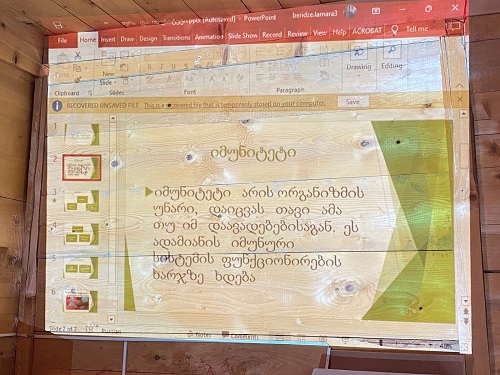 [Autosaved] - PowerPoint beridze.lamara3
File Home Insert Draw Design Transitions Animation Slide Show Record Review View Help ACROBAT Tell me
New
Slide
Drawing Editing
Clipboard Slides Font Paragraph
RECOVERED UNSAVED FILE This is a recovered file that is temporarily stored on your computer. Save
1
2
3
4
5
6
იმუნიტეტი
იმუნიტეტი არის ორგანიზმის
უნარი, დაიცვას თავი ამა
თუ იმ დაავადებებისაგან. ეს
ადამიანის იმუნური
სისტემის ფუნქციონირების
ხარჯზე ხდება
Slide 2 of Russian Notes Comments